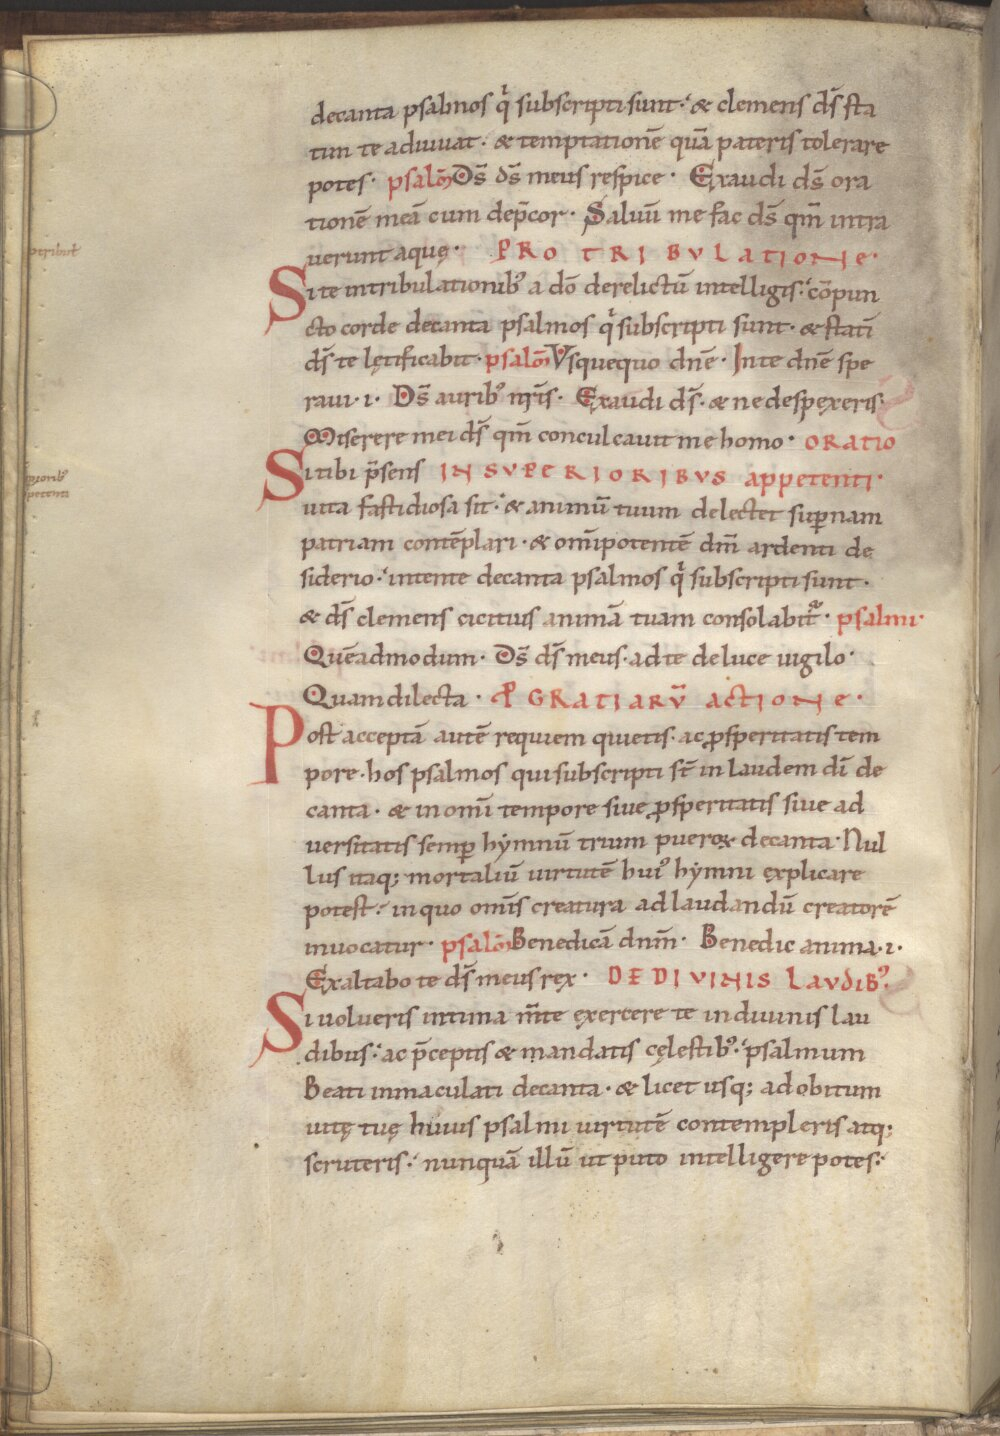 decanta psalmos qͥ subscripti sunt · & clemens ds̄ sta
tim te adiuuat · & temptationē quā pateris tolerare
potes · psalm̄ Ds̄ ds̄ meus respice · Exaudi ds̄ ora
tionē meā cum dep̄cor · Saluū me fac ds̄ qm̄ intra
uerunt aquę · PRO TRIBULATIONE ·
Si te in tribulationibꝰ a dō derelictū intelligis · cōpun
cto corde decanta psalmos qͥ subscripti sunt · & statī
ds̄ te lętificabit · psalm̄ Vsquequo dn̄e · In te dn̄e spe
raui · i · Ds̄ auribꝰ nr̄is · Exaudi ds̄ · & ne despexeris ·
Miserere mei ds̄ qm̄ conculcauit me homo · ORATIO
Si tibi p̄sens IN SUPERIORIBUS appetenti ·
uita fastidiosa sit · & animū tuum delectet suꝑnam
patriam contēplari · & om̄ipotentē dm̄ ardenti de
siderio · intente decanta psalmos qͥ subscripti sunt ·
& ds̄ clemens cicitius animā tuam consolabit᷑ · psalmi ·
Quēadmodum · Ds̄ ds̄ meus · ad te de luce uigilo ·
Quam dilecta · ꝓ GRATIARŪ ACTIONE ·
Post acceptā autē requiem quietis · ac ꝓsperitatis tem
pore · hos psalmos qui subscripti st̄ in laudem dī de
canta · & in om̄i tempore siue ꝓsperitatis siue ad
uersitatis semꝑ hẏmnū trium pueroꝝ decanta · Nul
lus itaq; mortaliū uirtutē huiꝰ hẏmni explicare
potest · in quo om̄is creatura ad laudandū creatorē
inuocatur · psalm̄ Benedicā dn̄m · Benedic anima · i ·
Exaltabo te ds̄ meus rex · DE DIVINIS LAUDIBꝰ ·
Si uolueris intima m̄te ęxercere te in diuinis lau
dibus · ac p̄ceptis & mandatis cęlestibꝰ · psalmum
Beati inmaculati decanta · & licet usq; ad obitum
uitę tuę huius psalmi uirtutē contempleris atq;
scruteris · nunquā illū ut puto intelligere potes ·